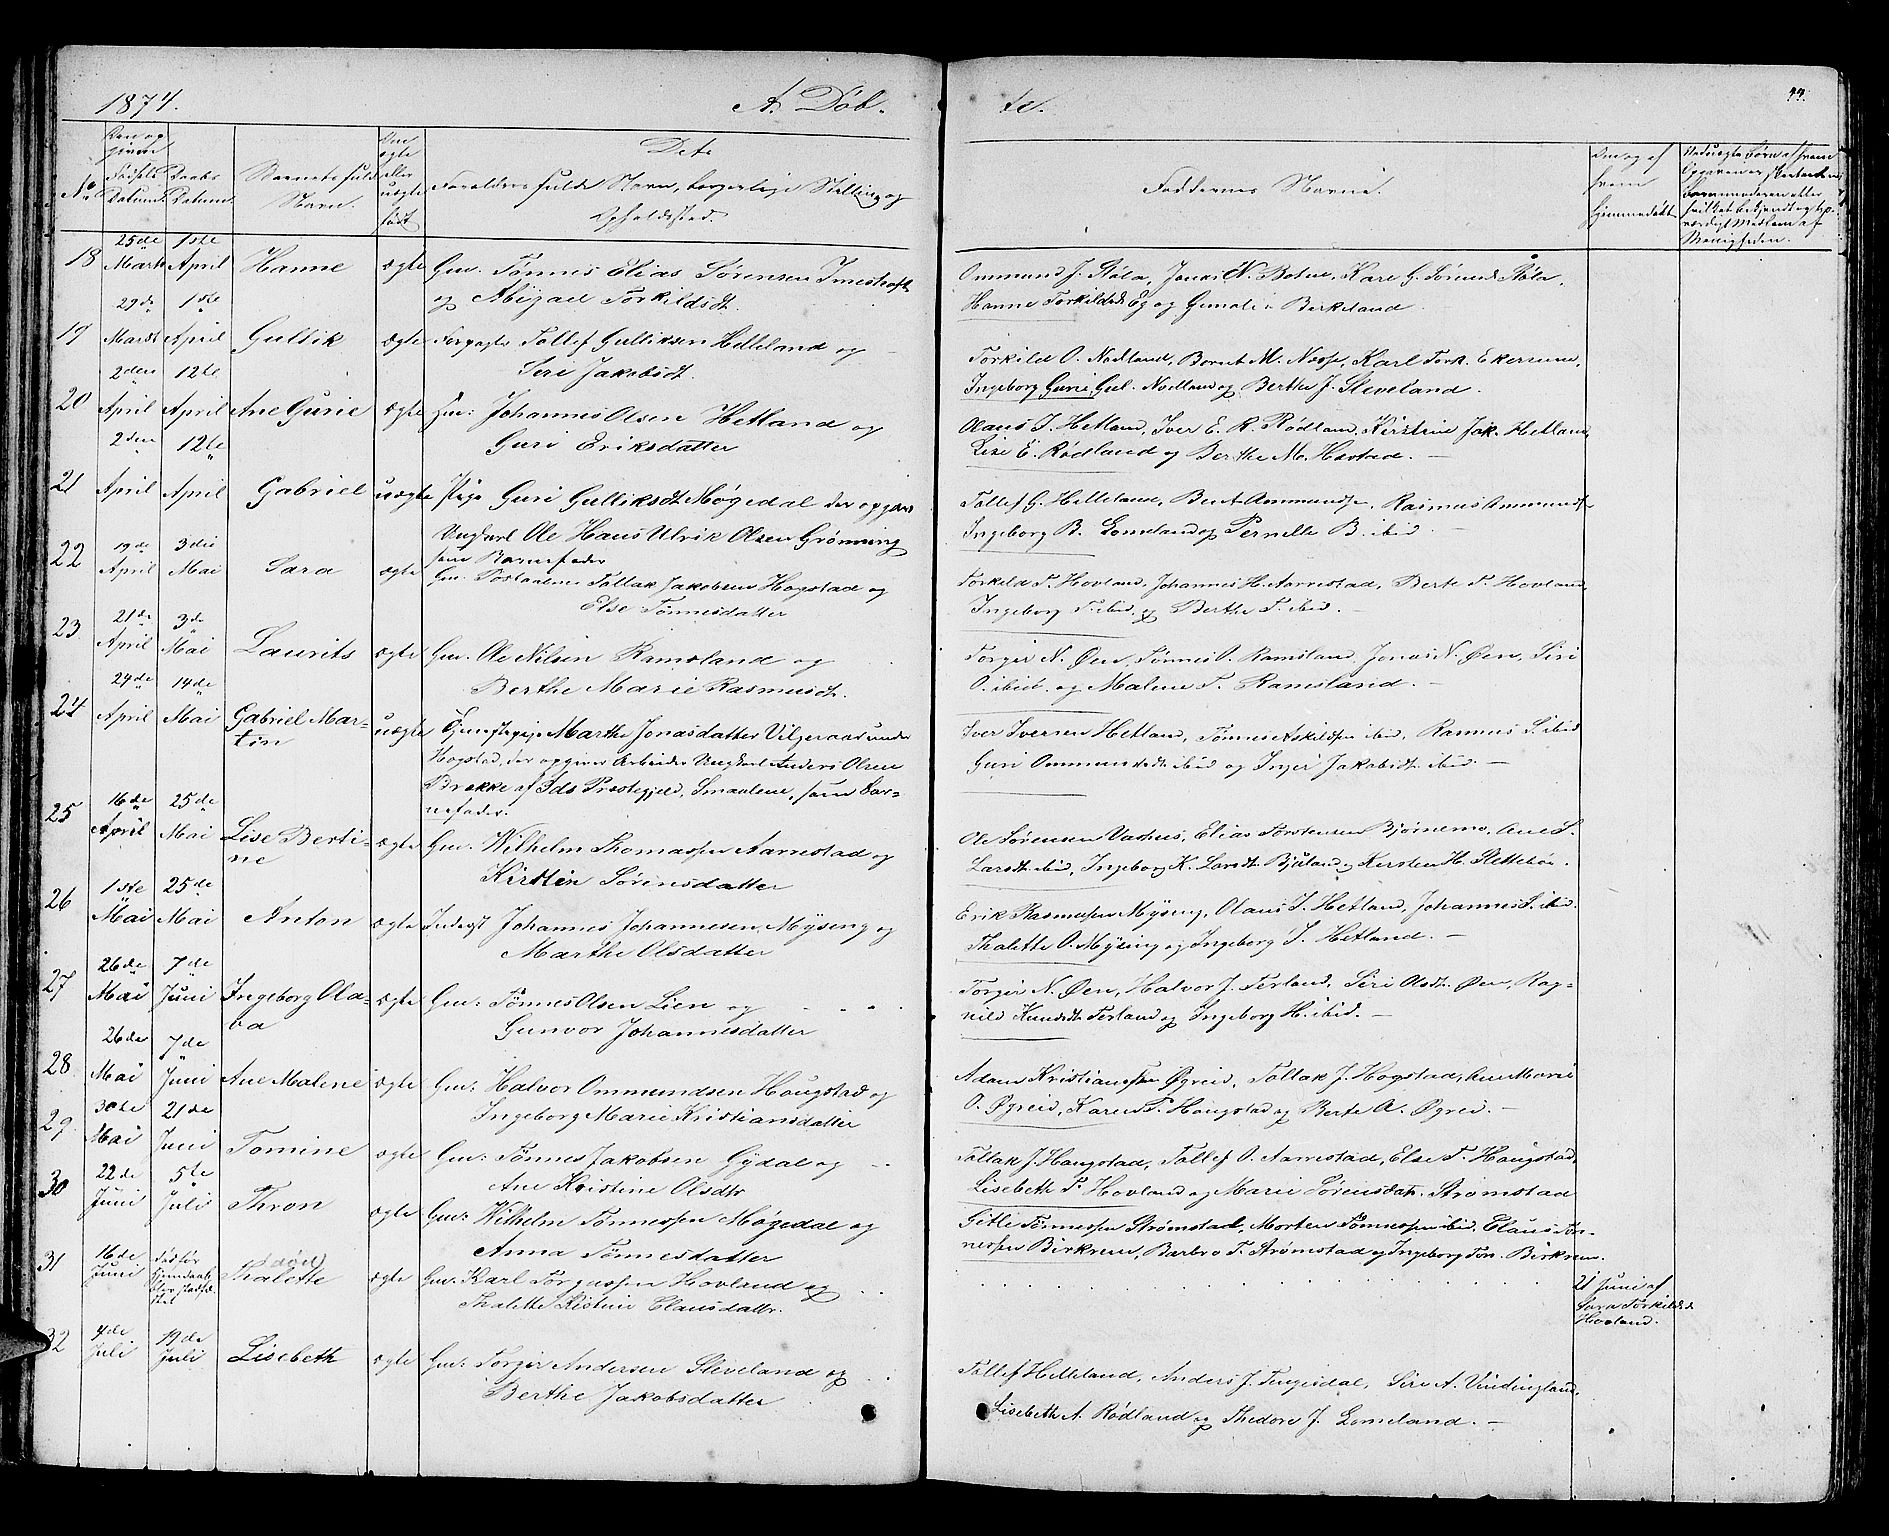 1874.
A. Døb-
te.
No
Fødsels Datum.
Daabs Datum.
Barnets fulde Navn.
ægte eller uægte født
Dets
Forældres fulde Navn, borgerlige Stilling og
Opholdssted.
Faddernes Navne.
18 25de Marts 1ste April Hanne ægte Gm. Tønnes Elias Sørensen
og Abigael Torkildsdt.
Ommund J. Støla, Jonas N. Botne, Kare G. Støla,
Hanne Torkildsdt Eg og Gunale Birkeland
19 29de Marts 1ste April Gullik ægte Forpagter Tollef Gulliksen Helleland og
Seri Jakobsdt.
Torkild O. Nodland, Bernt M. Karl Tork. Ekersund,
Ingeborg Gurie Gul. Nodland og Berthe J. Sleveland.
20 2den April 12te April Ane Gurie ægte Gm: Johannes Olsen Hetland og
Guri Eriksdatter
Olaus J. Hetland, Iver E. R. Rødland, Kirstine Jak. Hetland,
Lise E. Rødland og Berthe M. Hastad.
21 2den April 12te April Gabriel uægte Pige Guri Gulliksdt Møgedal der opgiver
Ungkarl Ole Hans Ulrik Olsen Grønning
som Barnefader
Tollef G. Helleland, Bent Ammundsen, Rasmus Ammundsen
Ingeborg B. Lomeland og Pernille B. ibid
22 19de April 3die Mai Sara ægte Gm: Tollak Jakobsen Hogstad og
Else Tønnesdatter
Torkild T. Hovland, Johannes H. Aarrestad, Berte T. Hovland,
Ingeborg T. ibid og Berthe T. ibid.
23 21de April 3de Mai Laurits ægte Gm. Ole Nilsen Ramsland og
Berthe Marie Rasmusdt.
Torger N. Øen, Tønnes O. Ramsland, Jonas N. Øen, Siri
O. ibid. og Malene T. Ramsland.
24 24de April 14de Mai Gabriel Mar-
tin uægte Tjenestepige Marthe Jonasdatter under
Hogstad, der opgiver Arbeider Ungkarl Anders Olsen
Brække af Ids Præstegjeld, Smaalene, som Bar-
nefader.
Iver Iversen Hetland, Tønnes Askildsen ibid, Rasmus S. ibid
Guri Ommundsdt ibid og Inger Jakobsdt ibid.
25 16de April 25de Mai Lise Berti-
ne ægte Gm: Wilhelm Thomassen Aarrestad og
Kirstin Sørensdatter
Ole Sørensen Vashus, Elias Torstensen Bjørnemo, Ane S.
Larsdt ibid, Ingeborg K. Larsdt. Bjuland og Kersten H. Slettebøe.
26 1ste Mai 25de Mai Anton ægte Inderst Johannes Johannesen Mysing og
Marthe Olsdatter
Erik Rasmussen Mysing, Olaus J. Hetland, Johannes S. ibid.
Thalette O. Mysing og Ingeborg J. Hetland.
27 26de Mai 7de Juni Ingeborg Ola-
va ægte Gm: Tønnes Olsen Lien og
Gunvor Johannesdatter
Torger N. Øen, Halvor J. Terland, Siri Olsdt. Øen, Rag-
nild Knudsdt Terland og Ingeborg H. ibid.
28 26de Mai 7de Juni Ane Malene ægte Gm: Halvor Ommundsen Hougstad og
Ingeborg Marie Kristiansdatter
Adam Kristiansen Øgreid, Tollak J. Hogstad, Ane Marie
O. Øgreid, Karen T. Hougstad og Berte A. Øgreid.
29 30te Mai 21de Juni Tomine ægte Gm: Tønnes Jakobsen Gydal og
Ane Kristine Olsdtr
Tollak J. Hougstad, Tollef O. Aarrestad, Else T. Hougstad,
Lisebeth T. Hovland og Marie Sørensdatr. Strømstad
30 22de Juni 5te Juli Thron ægte Gm: Wilhelm Tønnessen Møgedal og
Anna Tønnesdatter
Gitle Tønnessen Strømstad, Morten Tønnessen ibid, Claus Tøn-
nessen Birkrem, Barbro T. Strømstad og Ingeborg Tøn. Birkrem.
31 16de Juni død før Hjemdaab. blev stadfæ-
stet død Thalette ægte Gm. Karl Torgersen Hovland og
Thalette Kistine Clausdatr.
21 Juni af
Sara Torkildsd
Hovland.
32 4de Juli 19de Juli Lisebeth ægte Gm: Torger Andersen Sleveland og
Berthe Jakobsdatter
Tollef Helleland, Anders J. Tengesdal, Siri A. Vindingland,
Lisebeth A. Rødland og Thedore J. Lomeland.